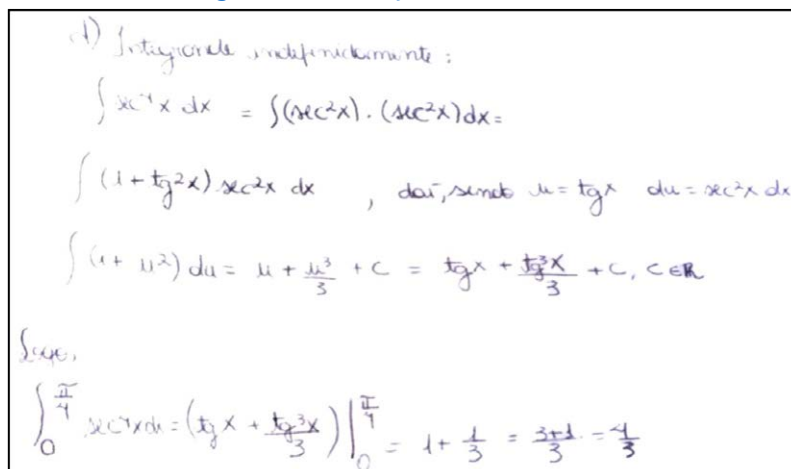 d) Integrando indefinidamente:
∫ sec⁴x dx = ∫(sec²x) · (sec²x)dx =
∫ (1 + tg²x) sec²x dx , daí, sendo u = tgx du = sec²x dx
∫ (1 + u²) du = u + u³/3 + C = tgx + tg³x/3 + C, C ∈ ℝ
Logo,
∫₀^(π/4) sec⁴x dx = (tgx + tg³x/3)|₀^(π/4) = 1 + 1/3 = (3+1)/3 = 4/3